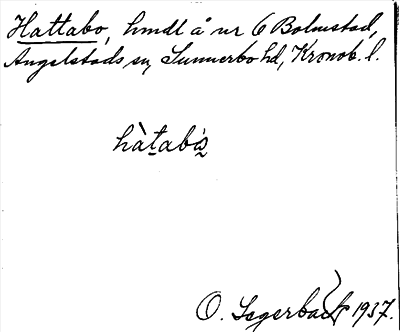 Hattabo, hmdl å nr 6 Bolmstad,
Angelstads sn, Sunnerbo hd, Kronob. l.
hàtabò̰
O. Segerbäck 1937.